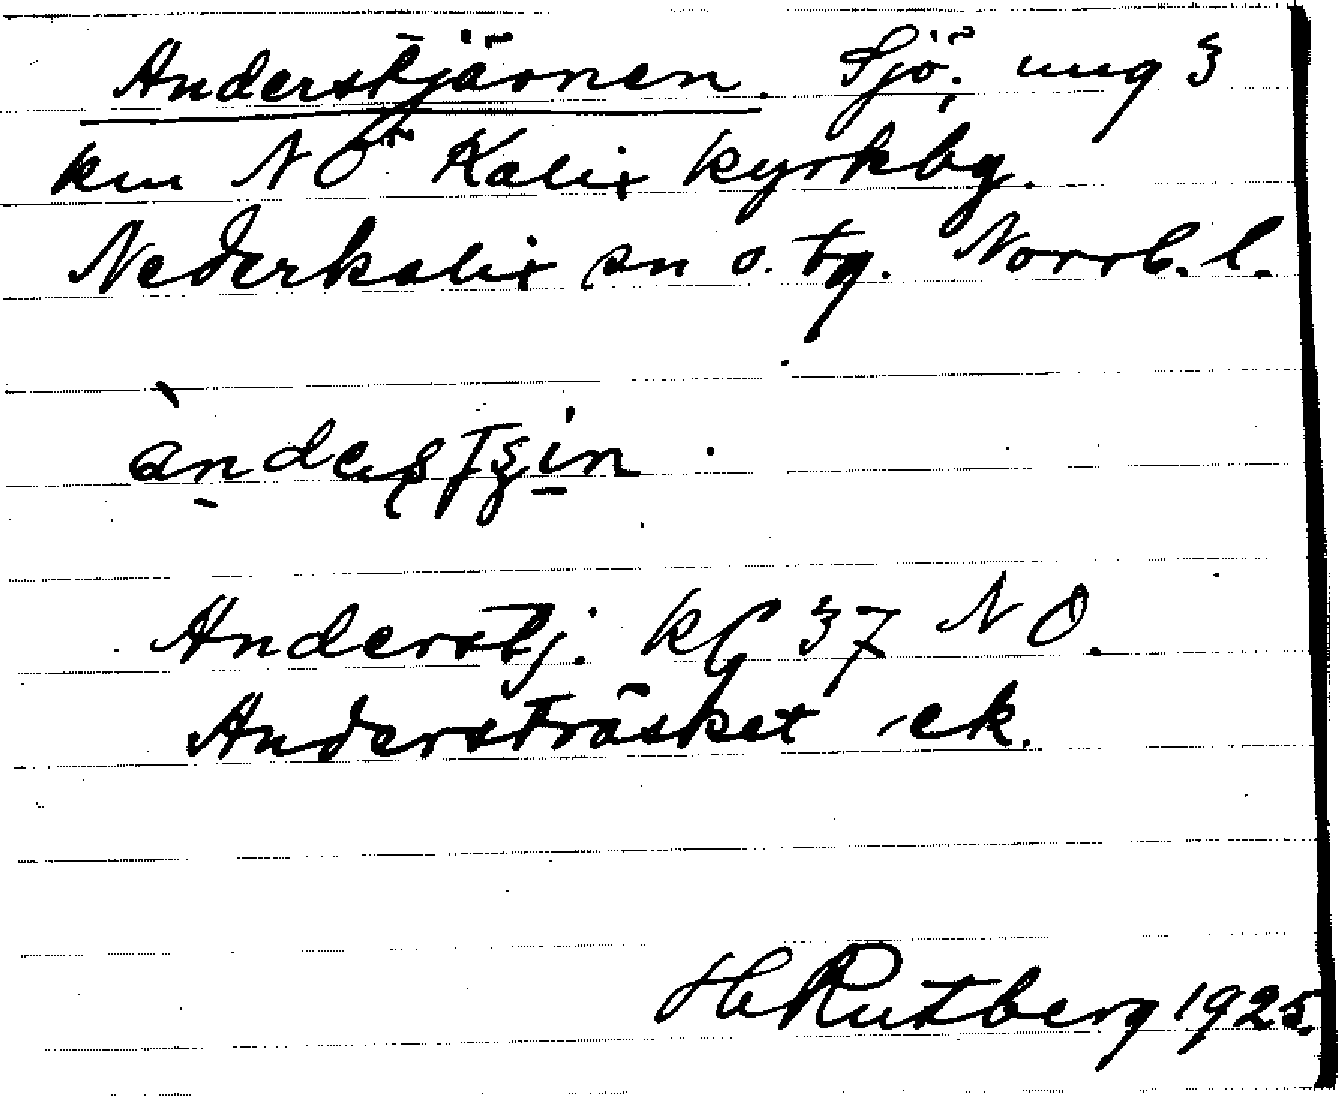 Anderstjärnen. Sjö, ung 3
km NÖ Kalix kyrkby.
Nederkalix sn o. tg. Norrb. l.
Anderstj. kf 37 NO.
Andersträsket ek.
H Rutberg 1925.